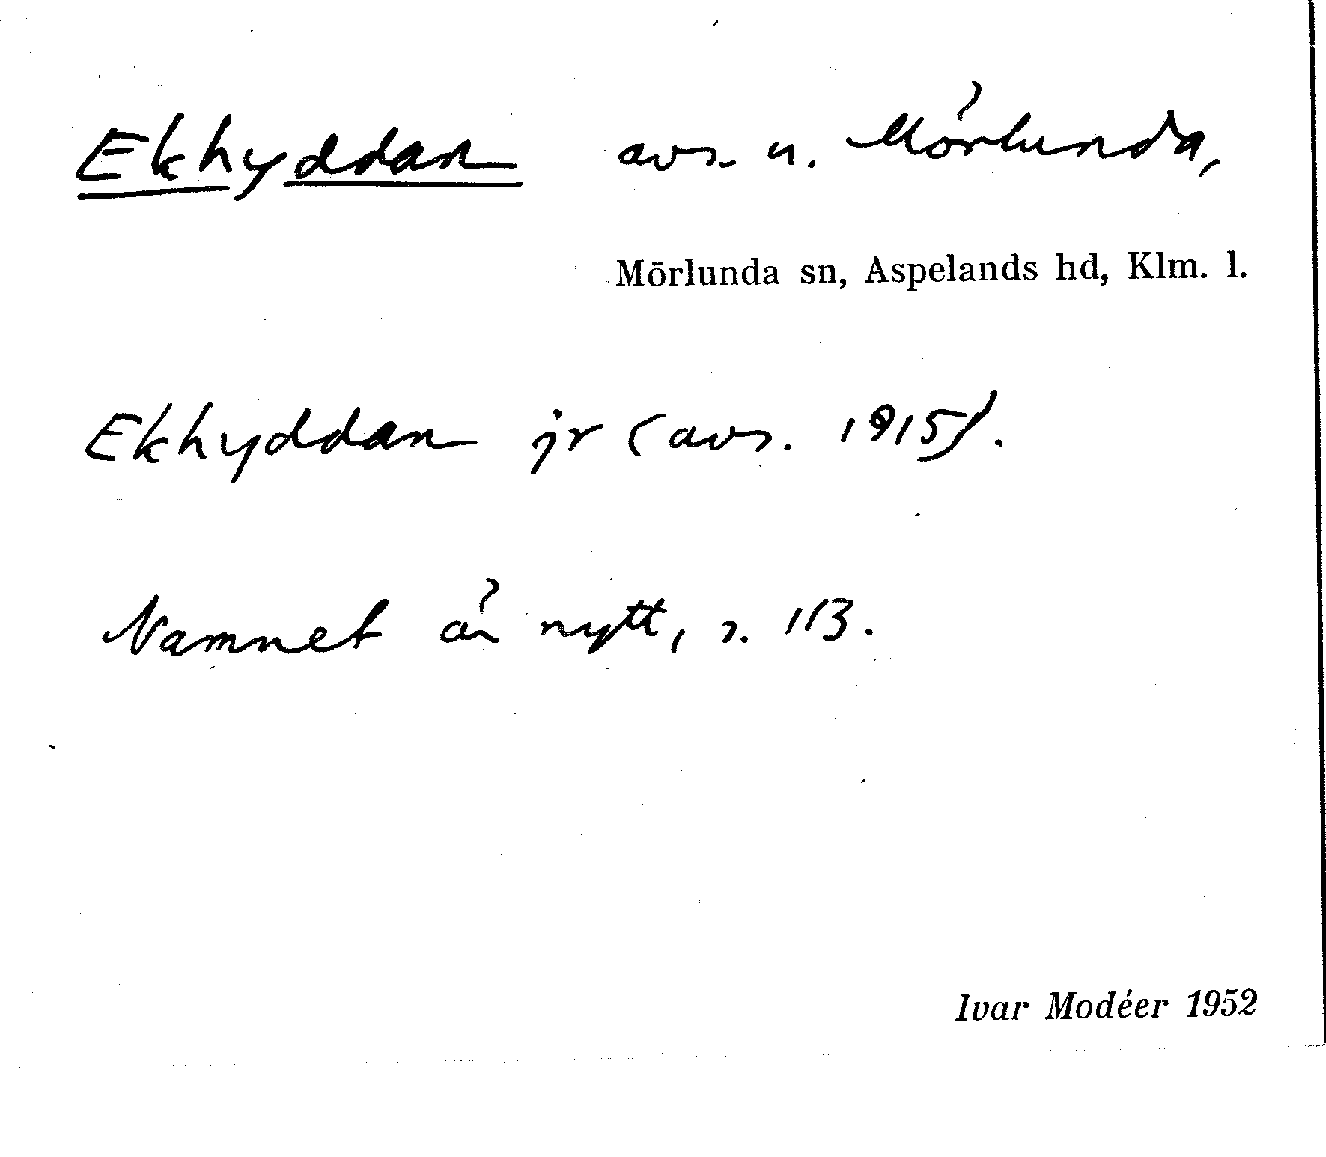 Ekhyddan avs. u. Mörlunda,
Mörlunda sn, Aspelands hd, Klm. l.
Ekhyddan jr (avs. 1915).
Namnet är nytt, s. 113.
Ivar Modéer 1952